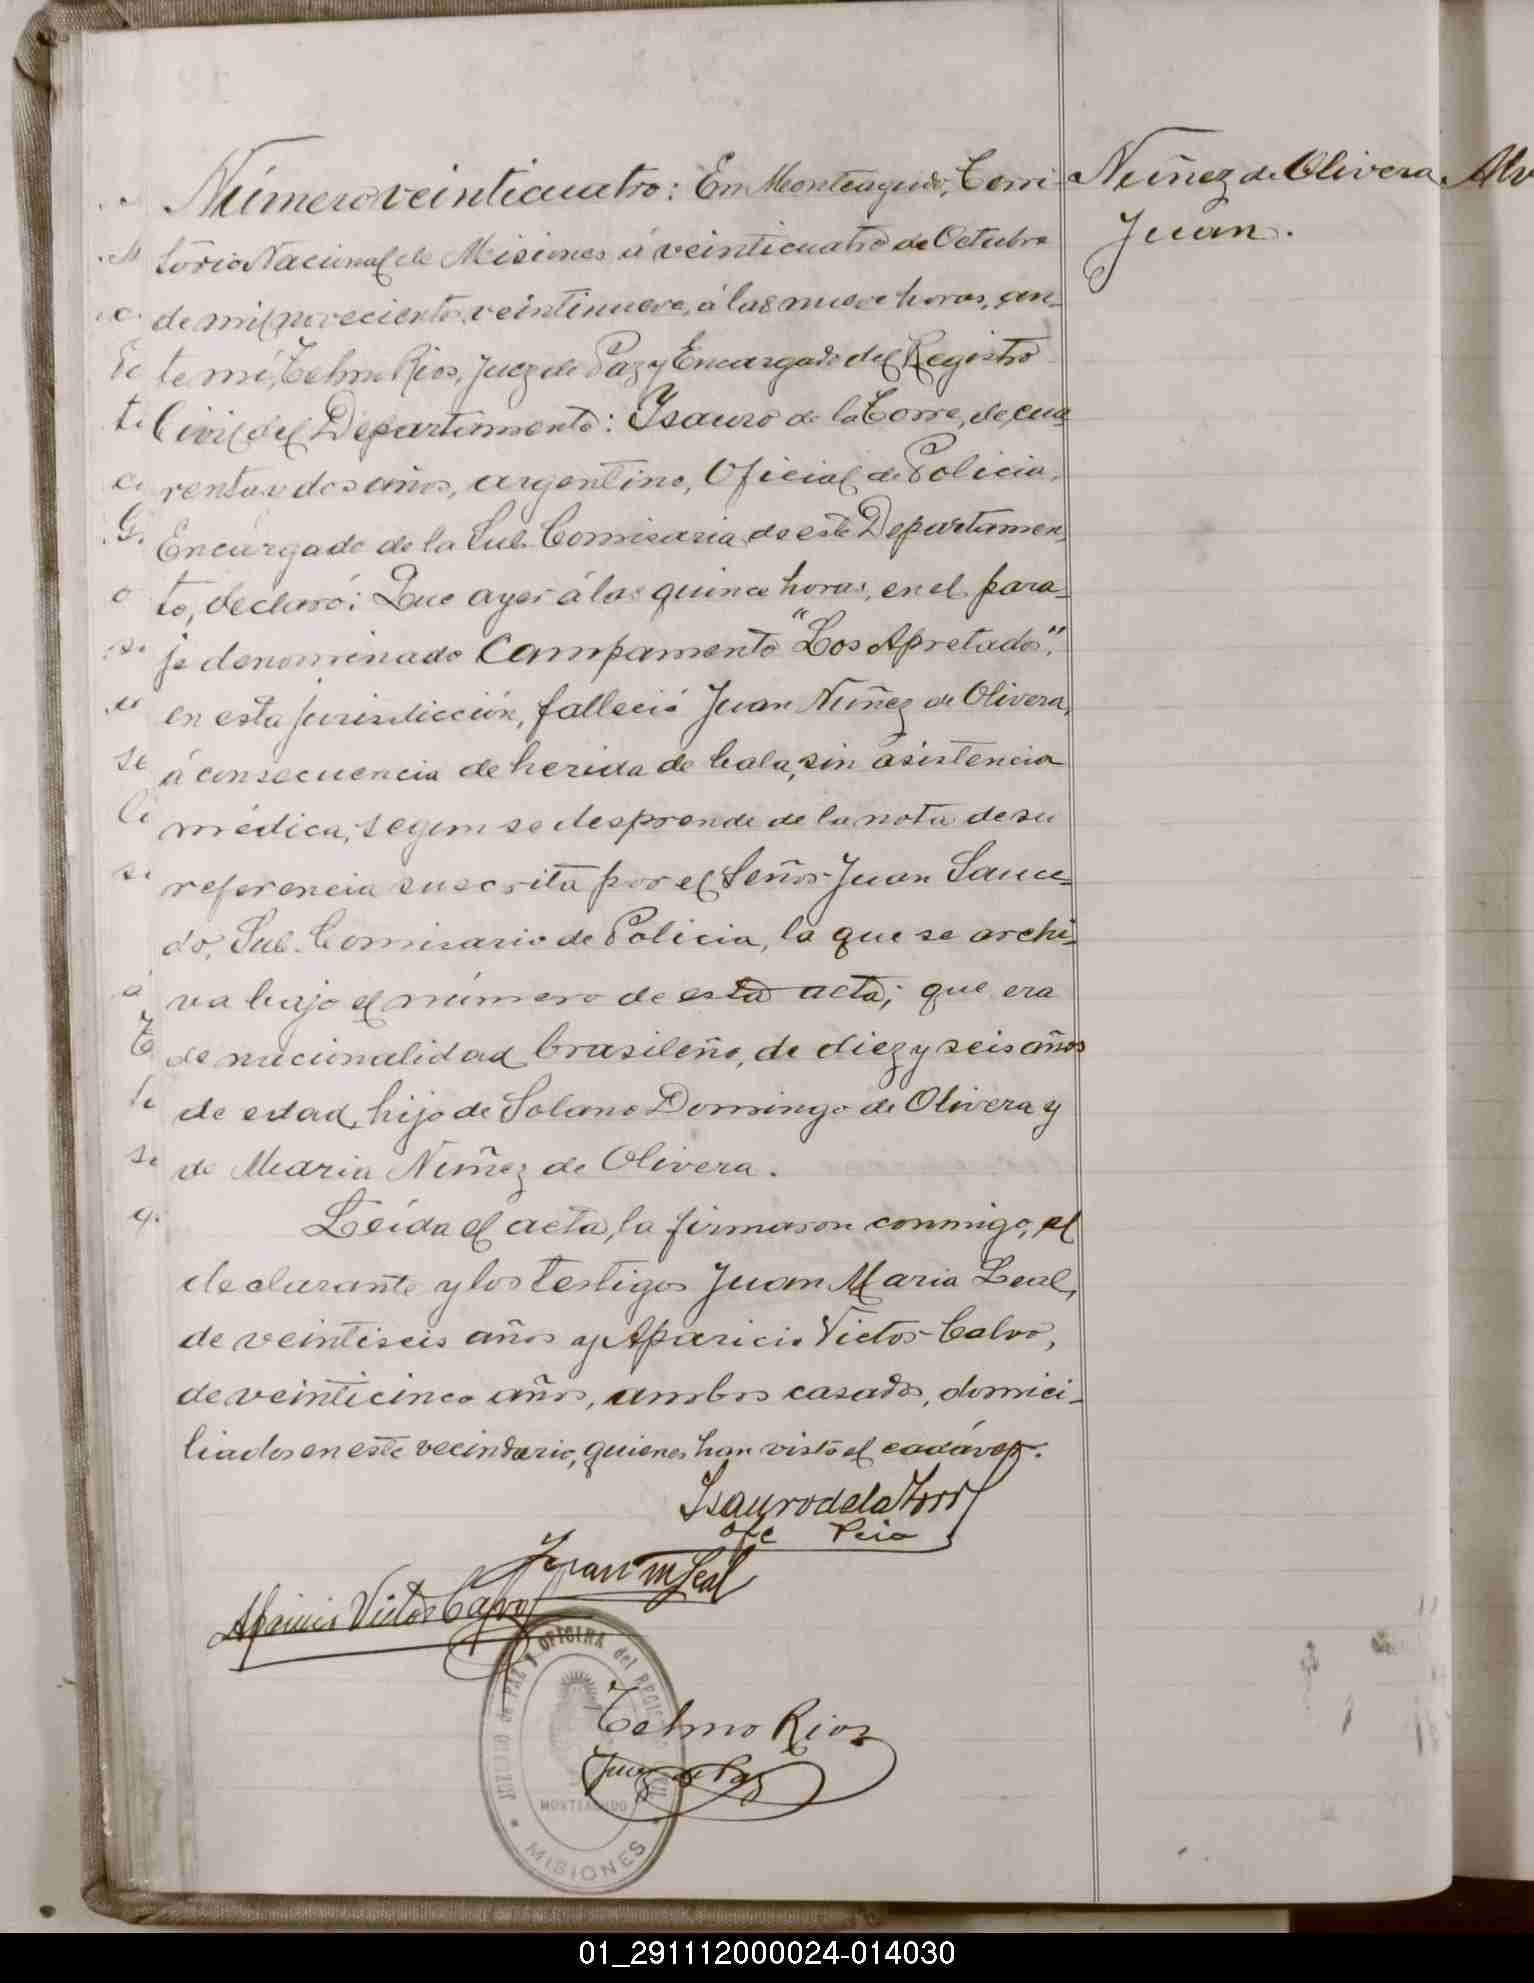 Número veinticuatro: En Monteagudo, Terri-
torio Nacional de Misiones á veinticuatro de Octubre
de mil novecientos veintinueve, á las nueve horas, an-
te mí, Telmo Rios, Juez de Paz y Encargado del Registro
Civil del Departamento: Isauro de la Torre, de cua-
renta y dos años, argentino, Oficial de Policia,
Encargado de la Sub. Comisaria de este Departamen-
to, declaró: Que ayer á las quince horas, en el para-
je denominado Campamento "Los Apretados",
en esta jurisdicción, falleció Juan Nuñez de Olivera,
á consecuencia de herida de bala, sin asistencia
médica, segun se desprende de la nota de su
referencia suscrita por el Señor Juan Sauce-
do, Sub. Comisario de Policia, la que se archi-
va bajo el número de esta acta; que era
de nacionalidad brasileño, de diez y seis años
de edad, hijo de Solano Domingo de Olivera y
de Maria Nuñez de Olivera.
Leída el acta, la firmaron conmigo, el
declarante y los testigos Juan Maria Leal,
de veintiseis años y Aparicio Victor Calvo,
de veinticinco años, ambos casados, domici-
liados en este vecindario, quienes han visto el cadáver.
Isauro de la Torre
Ofc Pcia
Juan M Leal
Aparicio Victor Calvo
Telmo Rios
Juez de Paz
JUZGADO de PAZ y OFICINA del REGISTRO CIVIL
MONTEAGUDO
MISIONES
Nuñez de Olivera
Juan.
01_291112000024-014030